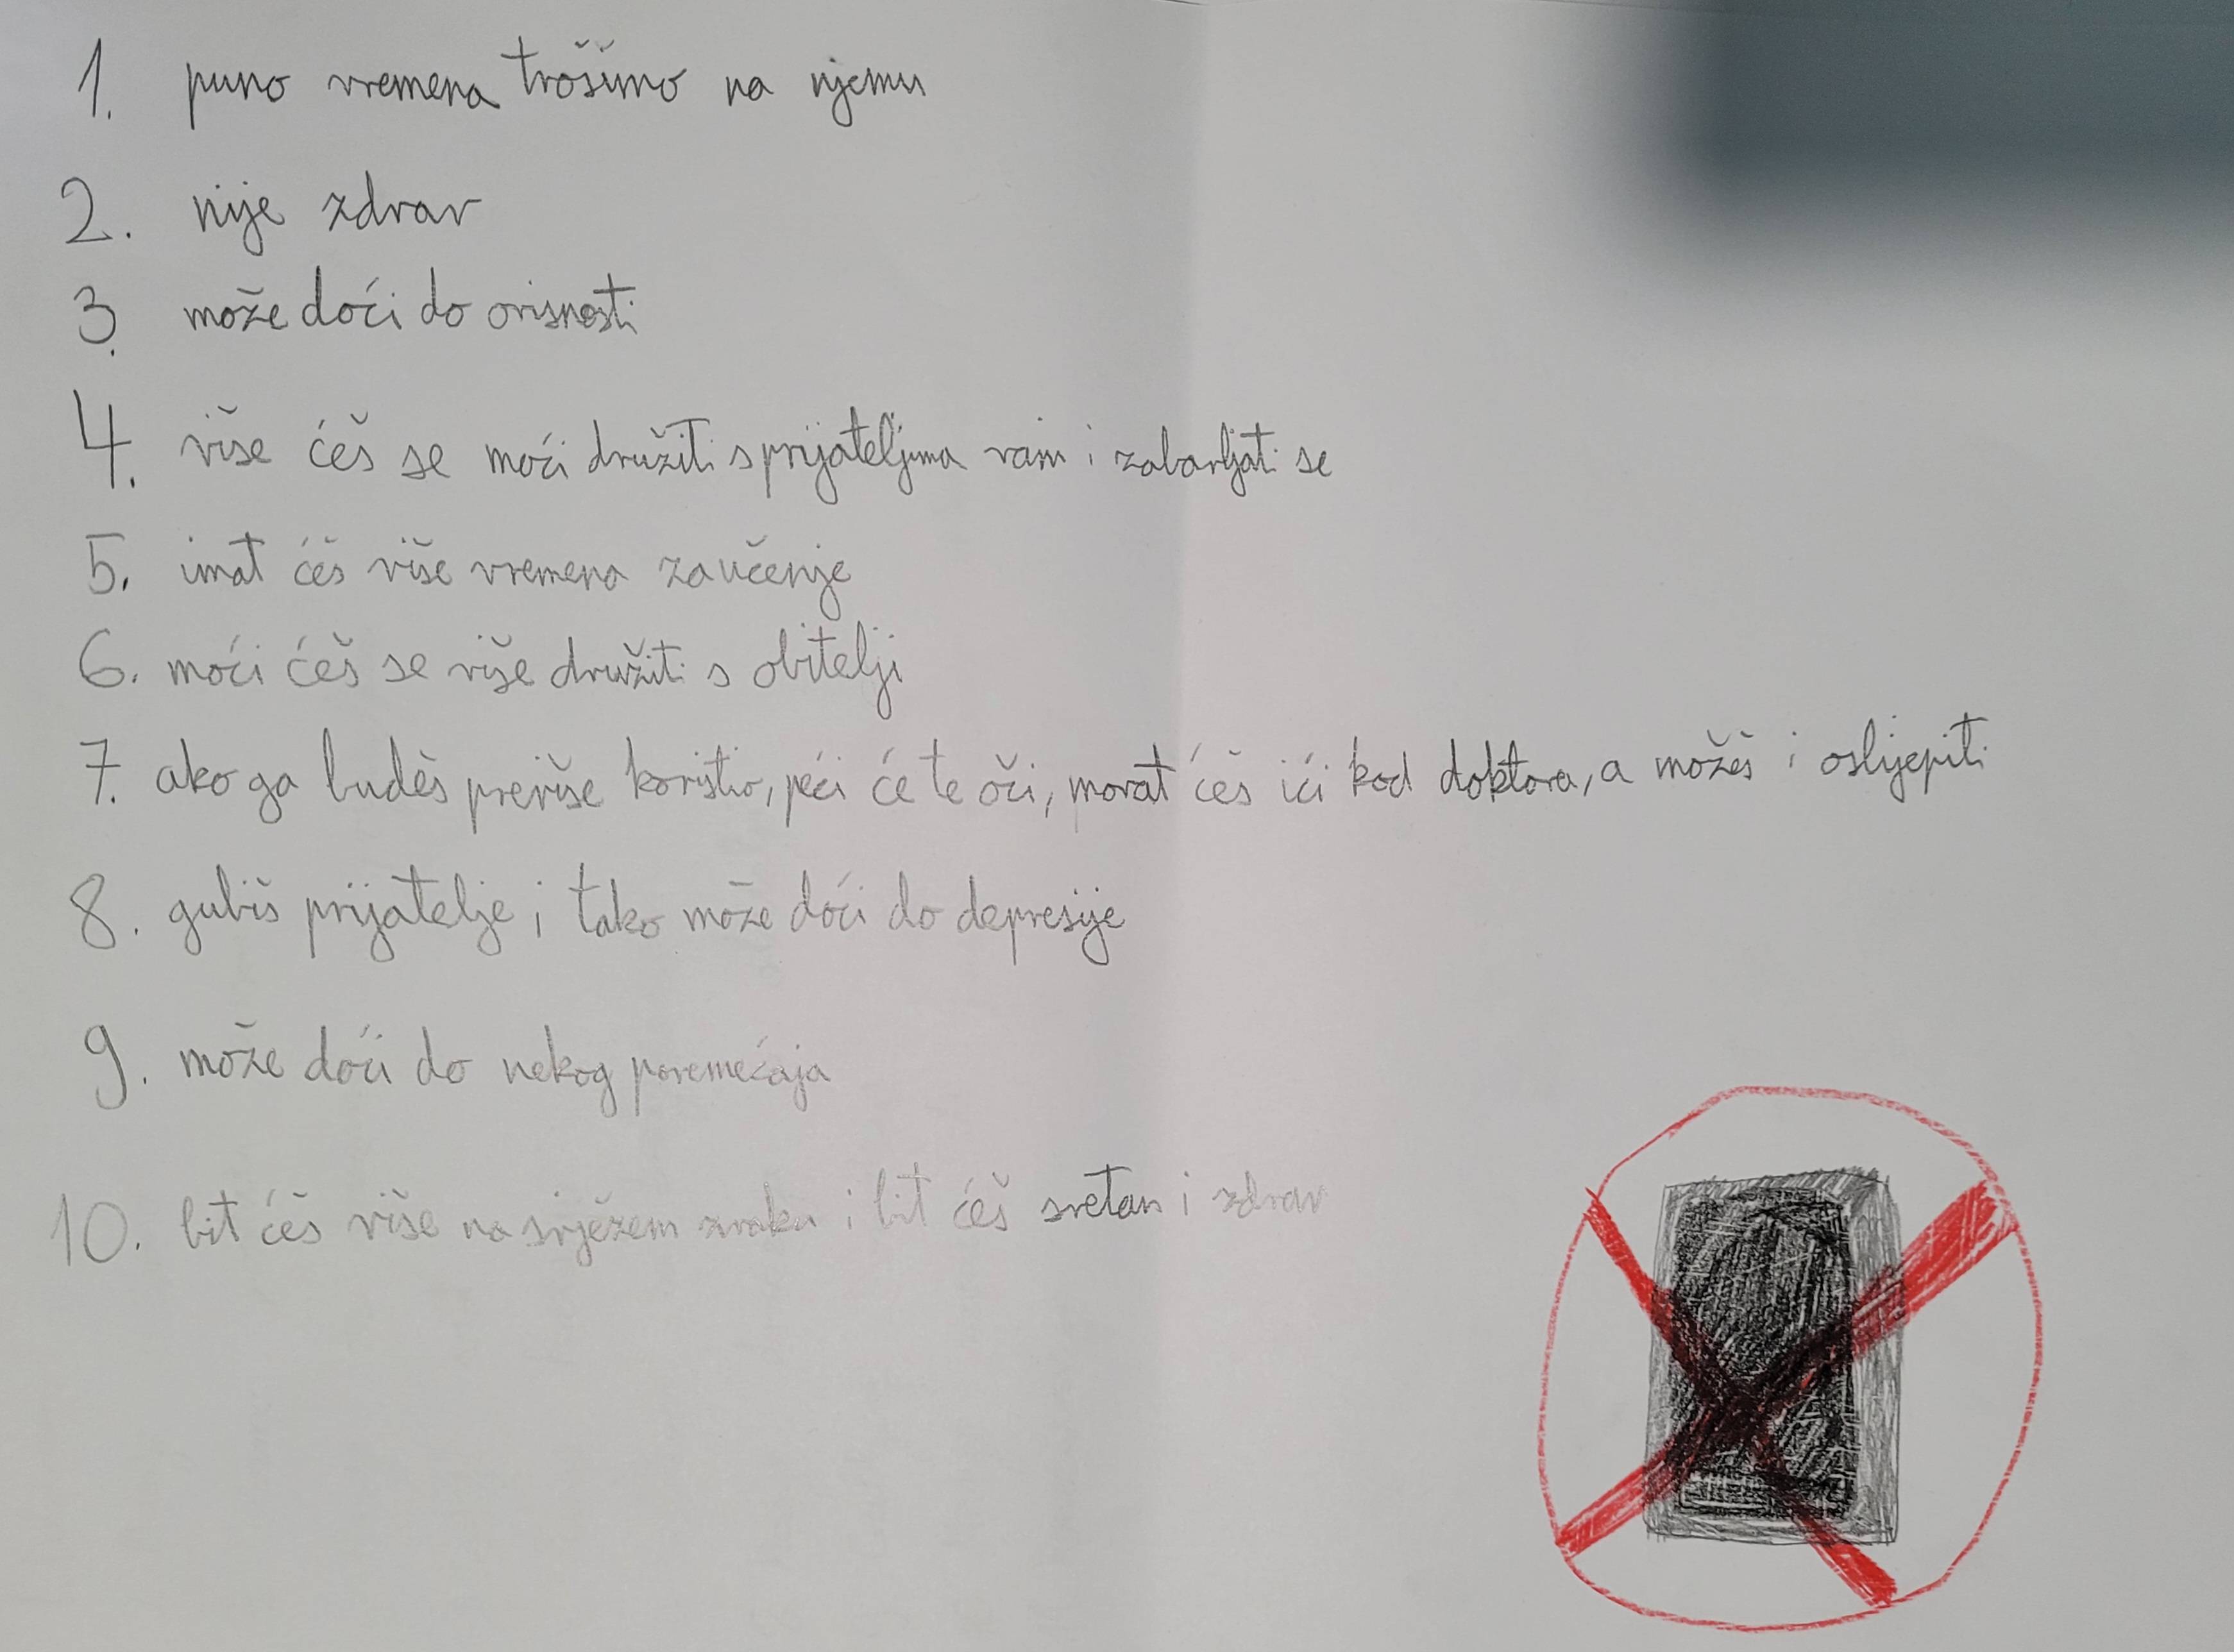 1. puno vremena trošimo na njemu
2. nije zdrav
3. može doći do ovisnosti
4. više ćeš se moći družiti s prijateljima vani i zabavljati se
5. imat ćeš više vremena za učenje
6. moći ćeš se više družiti s obitelji
7. ako ga budeš previše koristio, peći će te oči, morat ćeš ići kod doktora, a možeš i oslijepiti
8. gubiš prijatelje i tako može doći do depresije
9. može doći do nekog poremećaja
10. bit ćeš više na svježem zraku i bit ćeš sretan i zdrav